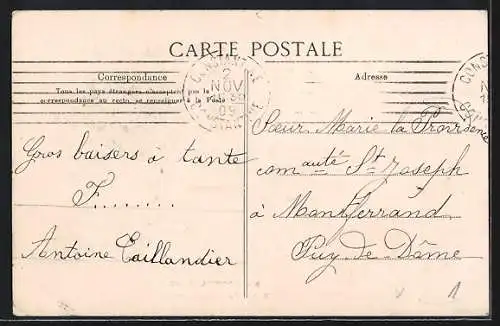 CARTE POSTALE
Correspondance
Tous les pays étrangers n'acceptent pas la
correspondance au recto, se renseigner à la Poste
CONSTANTINE
2
NOV
09
CONSTANTINE
Gros baisers à tante
F........
Antoine Taillandier
Adresse
Sœur Marie la Providence
comauté St Joseph
à Montferrand
Puy-de-Dôme
CONS